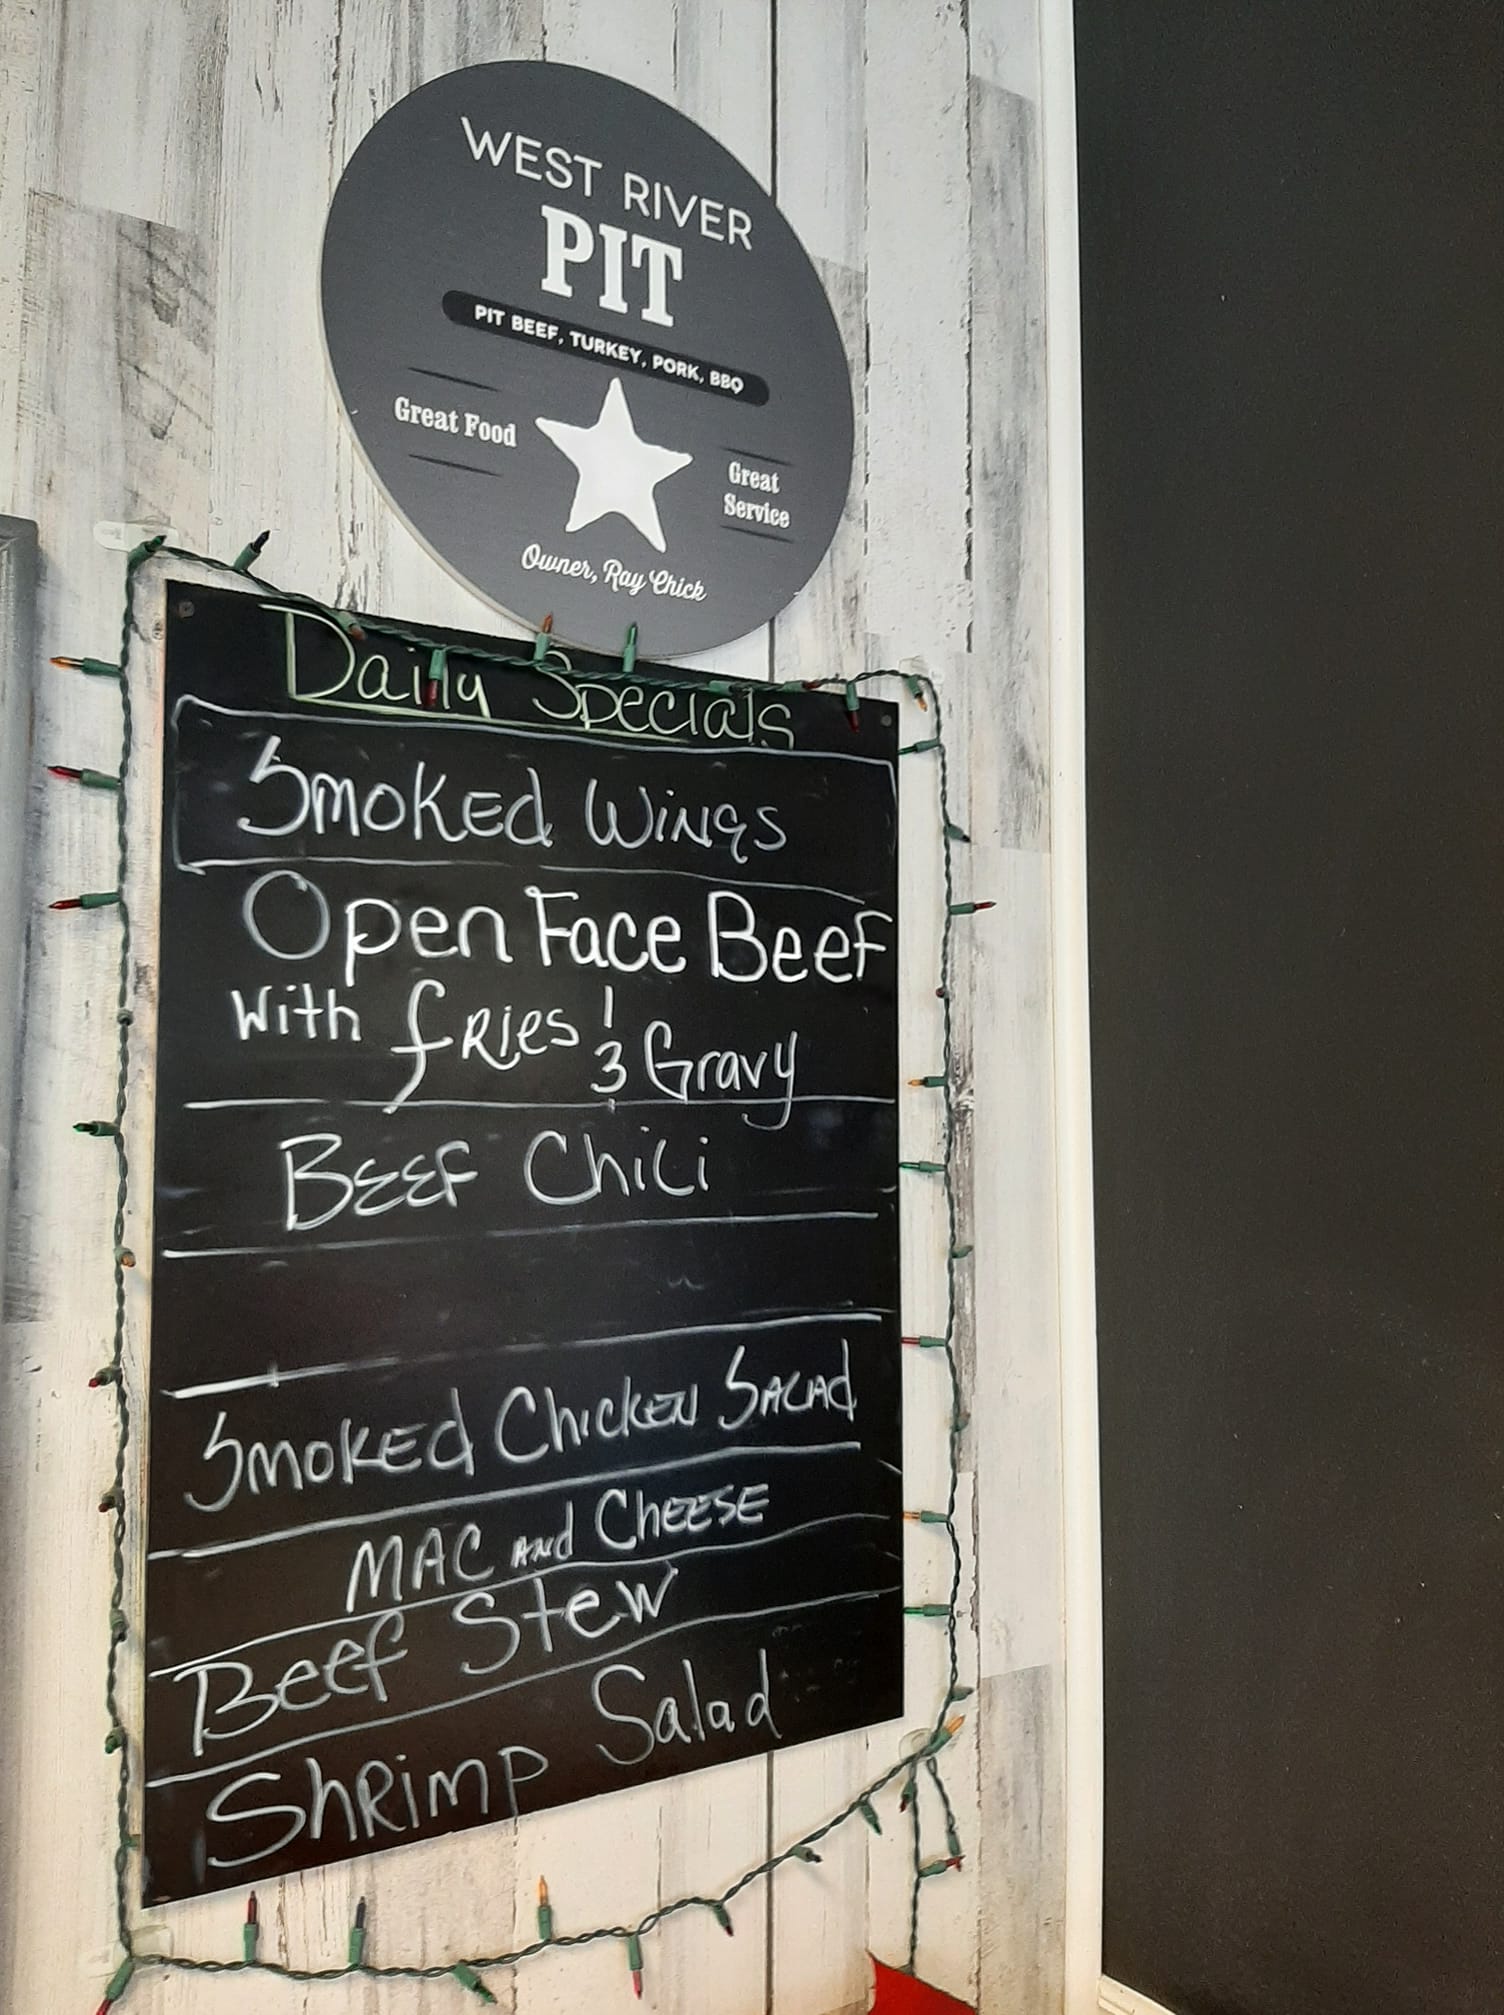 WEST RIVER
PIT
PIT BEEF, TURKEY, PORK, BBQ
Great Food
Great
Service
Owner, Ray Chick
Daily Specials
Smoked Wings
Open Face Beef
With fries & Gravy
Beef Chili
Smoked Chicken Salad
MAC and Cheese
Beef Stew
Shrimp Salad